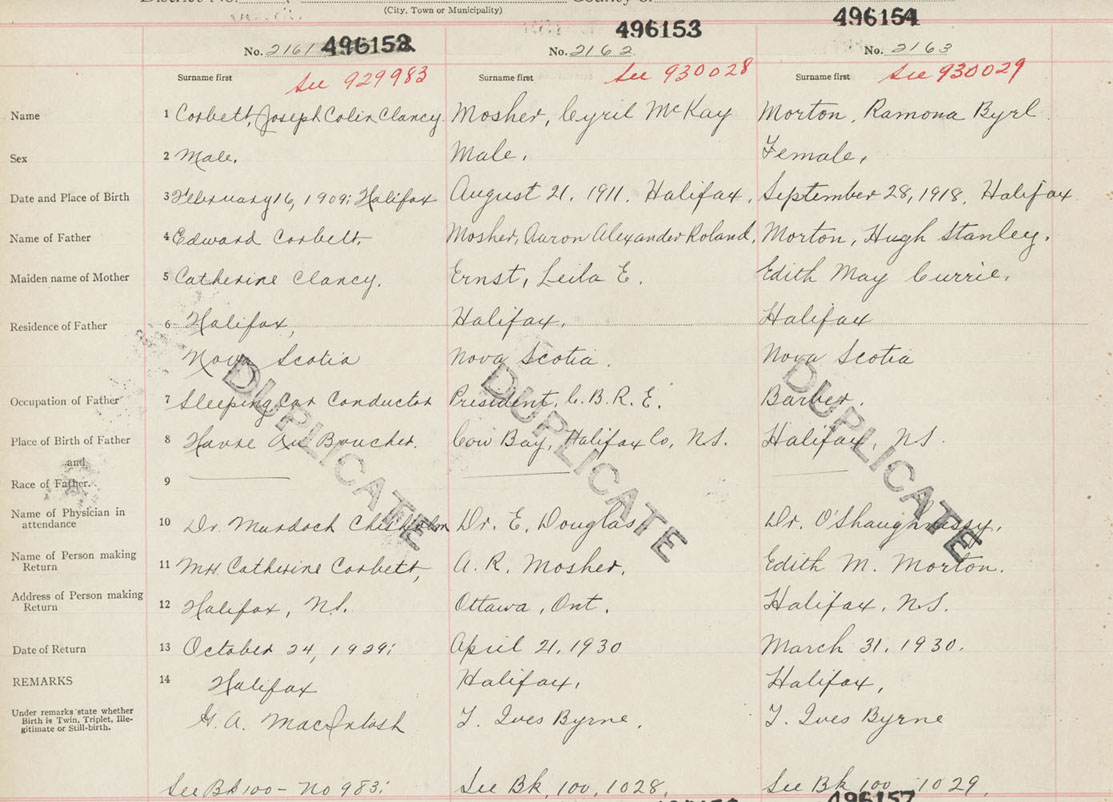 (City, Town or Municipality)
496152 496153 496154
No. 2161 No. 2162 No. 2163
Surname first See 929983 Surname first See 930028 Surname first See 930029
Name 1 Corbett, Joseph Colin Clancy. Mosher, Cyril McKay Morton, Ramona Byrl
Sex 2 Male. Male. Female,
Date and Place of Birth 3 February 16, 1909; Halifax August 21, 1911, Halifax, September 28, 1918, Halifax
Name of Father 4 Edward Corbett. Mosher, Aaron Alexander Roland, Morton, Hugh Stanley.
Maiden name of Mother 5 Catherine Clancy. Ernst, Leila E. Edith May Currie,
Residence of Father 6 Halifax, Halifax, Halifax
Nova Scotia Nova Scotia. Nova Scotia
Occupation of Father 7 Sleeping Car Conductor President, C. B. R. E. Barber.
Place of Birth of Father 8 Havre Au Boucher. Cow Bay, Halifax Co, N.S. Halifax, N.S.
and
Race of Father. 9
DUPLICATE DUPLICATE DUPLICATE
Name of Physician in
attendance 10 Dr. Murdoch Chisholm Dr. E. Douglas Dr. O'Shaughnessy,
Name of Person making
Return 11 Mrs. Catherine Corbett, A. R. Mosher, Edith M. Morton.
Address of Person making
Return 12 Halifax, N.S. Ottawa, Ont. Halifax, N.S.
Date of Return 13 October 24, 1929; April 21, 1930 March 31, 1930.
REMARKS 14 Halifax Halifax, Halifax,
Under remarks state whether
Birth is Twin, Triplet, Ille-
gitimate or Still-birth. G. A. MacIntosh T. Ives Byrne, T. Ives Byrne
See Bk 100 - No 983; See Bk, 100, 1028, See Bk 100, 1029,
496157